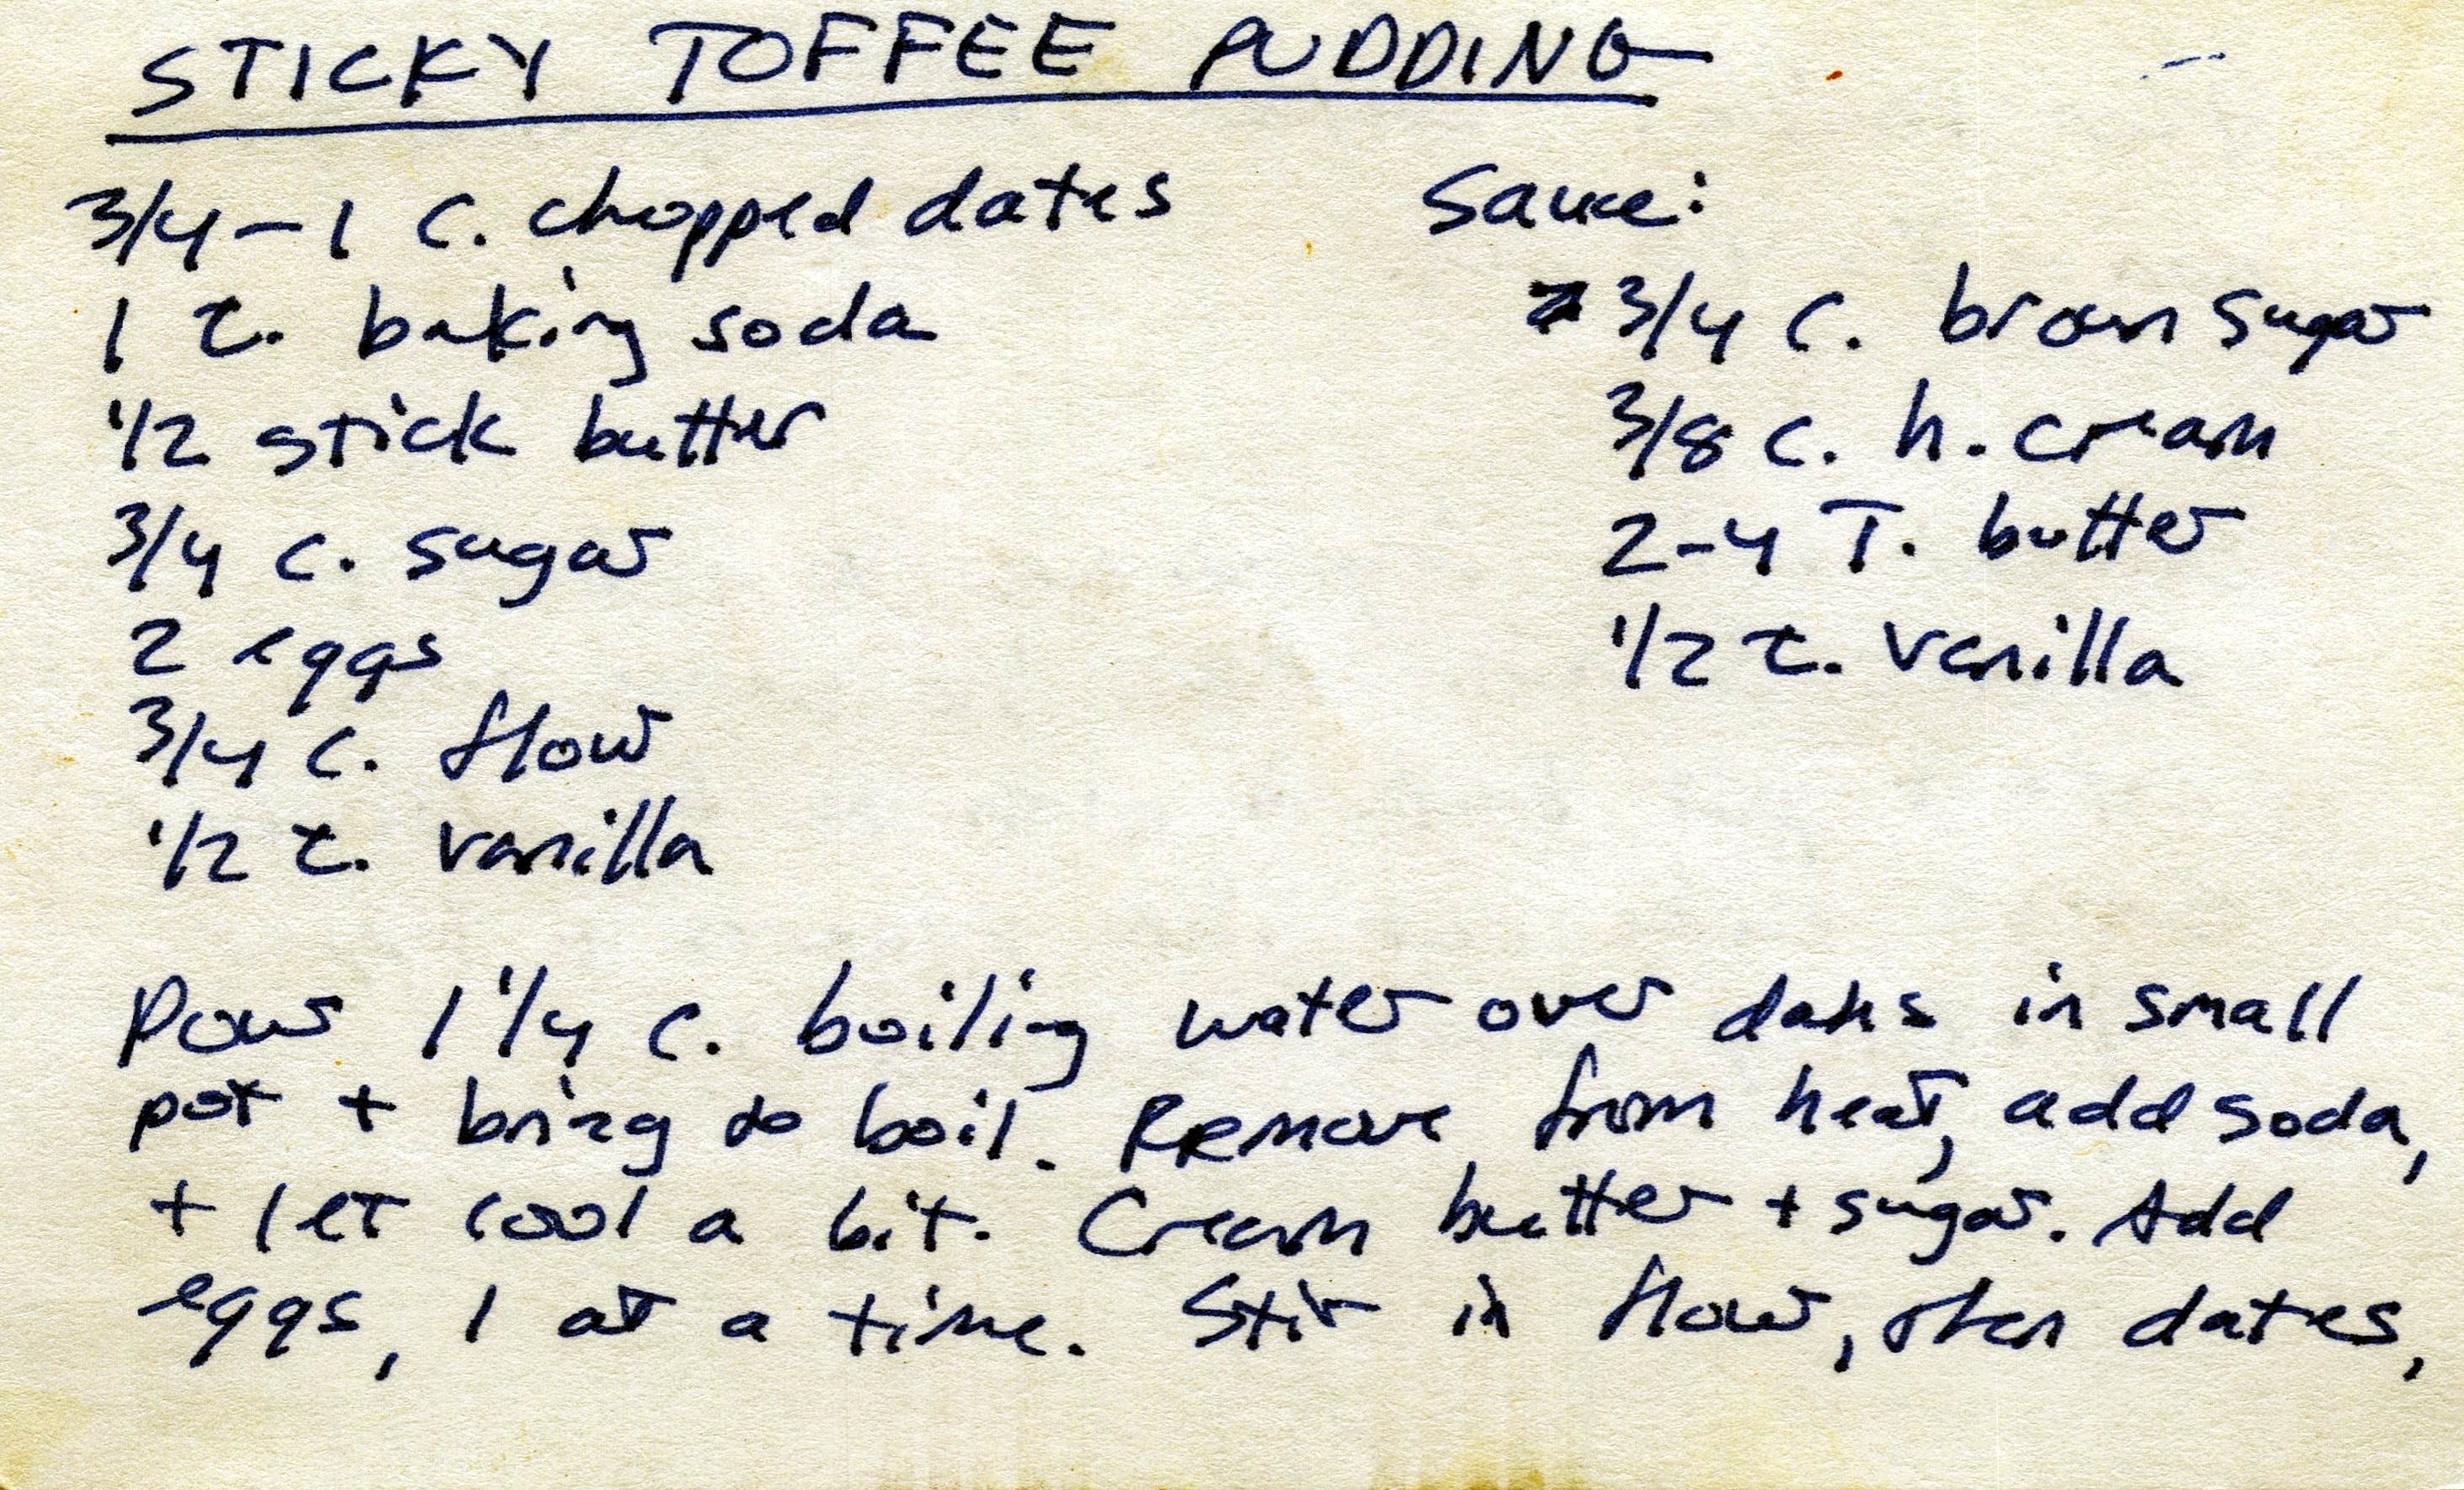 STICKY TOFFEE PUDDING
3/4-1 c. chopped dates
1 t. baking soda
1/2 stick butter
3/4 c. sugar
2 eggs
3/4 c. flour
1/2 t. vanilla
Sauce:
3/4 c. brown sugar
3/8 c. h. cream
2-4 T. butter
1/2 t. vanilla
Pour 1 1/4 c. boiling water over dates in small
pot + bring to boil. Remove from heat, add soda,
+ let cool a bit. Cream butter + sugar. Add
eggs, 1 at a time. Stir in flour, then dates,